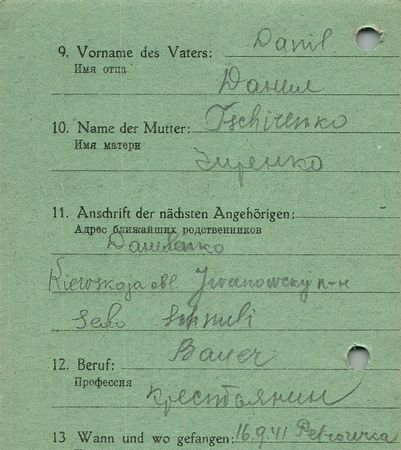 9. Vorname des Vaters: Danil
Имя отца
Данил
10. Name der Mutter: Tschirenko
Имя матери
Зиренко
11. Anschrift der nächsten Angehörigen:
Адрес ближайших родственников
Danilenko
Kiewskaja obl Iwanowsky р-н
Selo
12. Beruf: Bauer
Профессия
Крестьянин
13 Wann und wo gefangen: 16.9.41